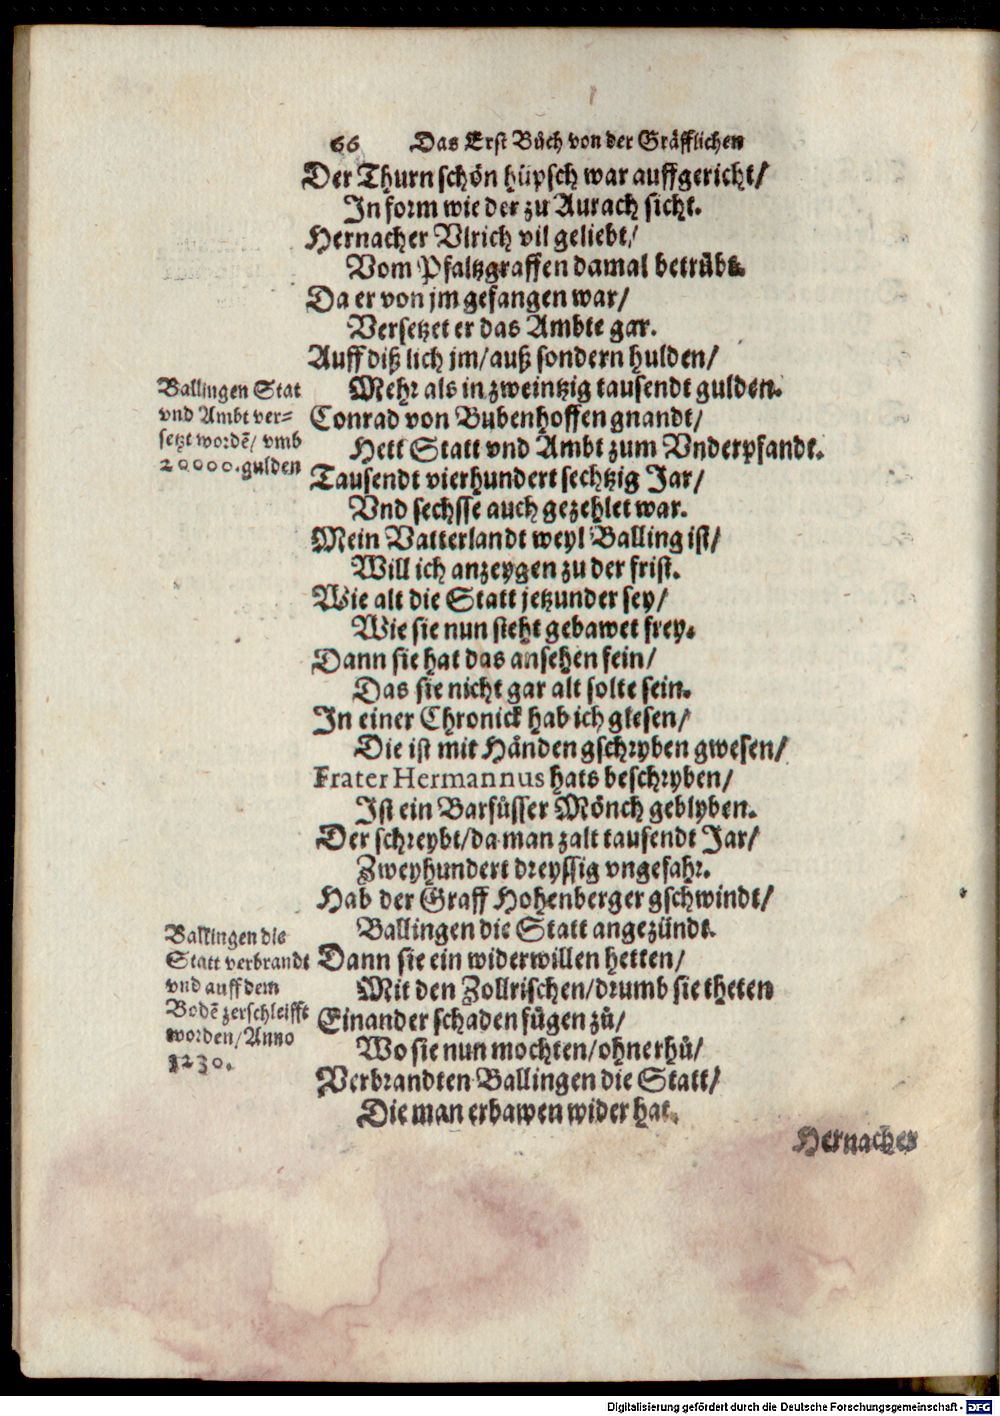 66 Das Erst Bůch von der Gräfflichen
Der Thurn schön hüpsch war auffgericht/
In form wie der zu Aurach sicht.
Hernacher Vlrich vil geliebt/
Vom Pfaltzgraffen damal betrübt.
Da er von jm gefangen war/
Versetzet er das Ambte gar.
Auff diß lich jm/ auß sondern hulden/
Mehr als in zweintzig tausendt gulden.
Ballingen Stat
vnd Ambt ver=
setzt wordẽ/ vmb
20000. gulden
Conrad von Bubenhoffen gnandt/
Hett Statt vnd Ambt zum Vnderpfandt.
Tausendt vierhundert sechtzig Jar/
Vnd sechsse auch gezehlet war.
Mein Vatterlandt weyl Balling ist/
Will ich anzeygen zu der frist.
Wie alt die Statt jetzunder sey/
Wie sie nun steht gebawet frey.
Dann sie hat das ansehen fein/
Das sie nicht gar alt solte sein.
In einer Chronick hab ich glesen/
Die ist mit Händen gschryben gwesen/
Frater Hermannus hats beschryben/
Ist ein Barfüsser Mönch geblyben.
Der schreybt/ da man zalt tausendt Jar/
Zweyhundert dreyssig vngefahr.
Hab der Graff Hohenberger gschwindt/
Ballingen die Statt angezündt.
Ballingen die
Statt verbrandt
vnd auff dem
Bodẽ zerschleifft
worden/ Anno
1230.
Dann sie ein widerwillen hetten/
Mit den Zollrischen/ drumb sie theten
Einander schaden fügen zů/
Wo sie nun mochten/ ohn erhů/
Verbrandten Ballingen die Statt/
Die man erbawen wider hat.
Hernacher
Digitalisierung gefördert durch die Deutsche Forschungsgemeinschaft - DFG